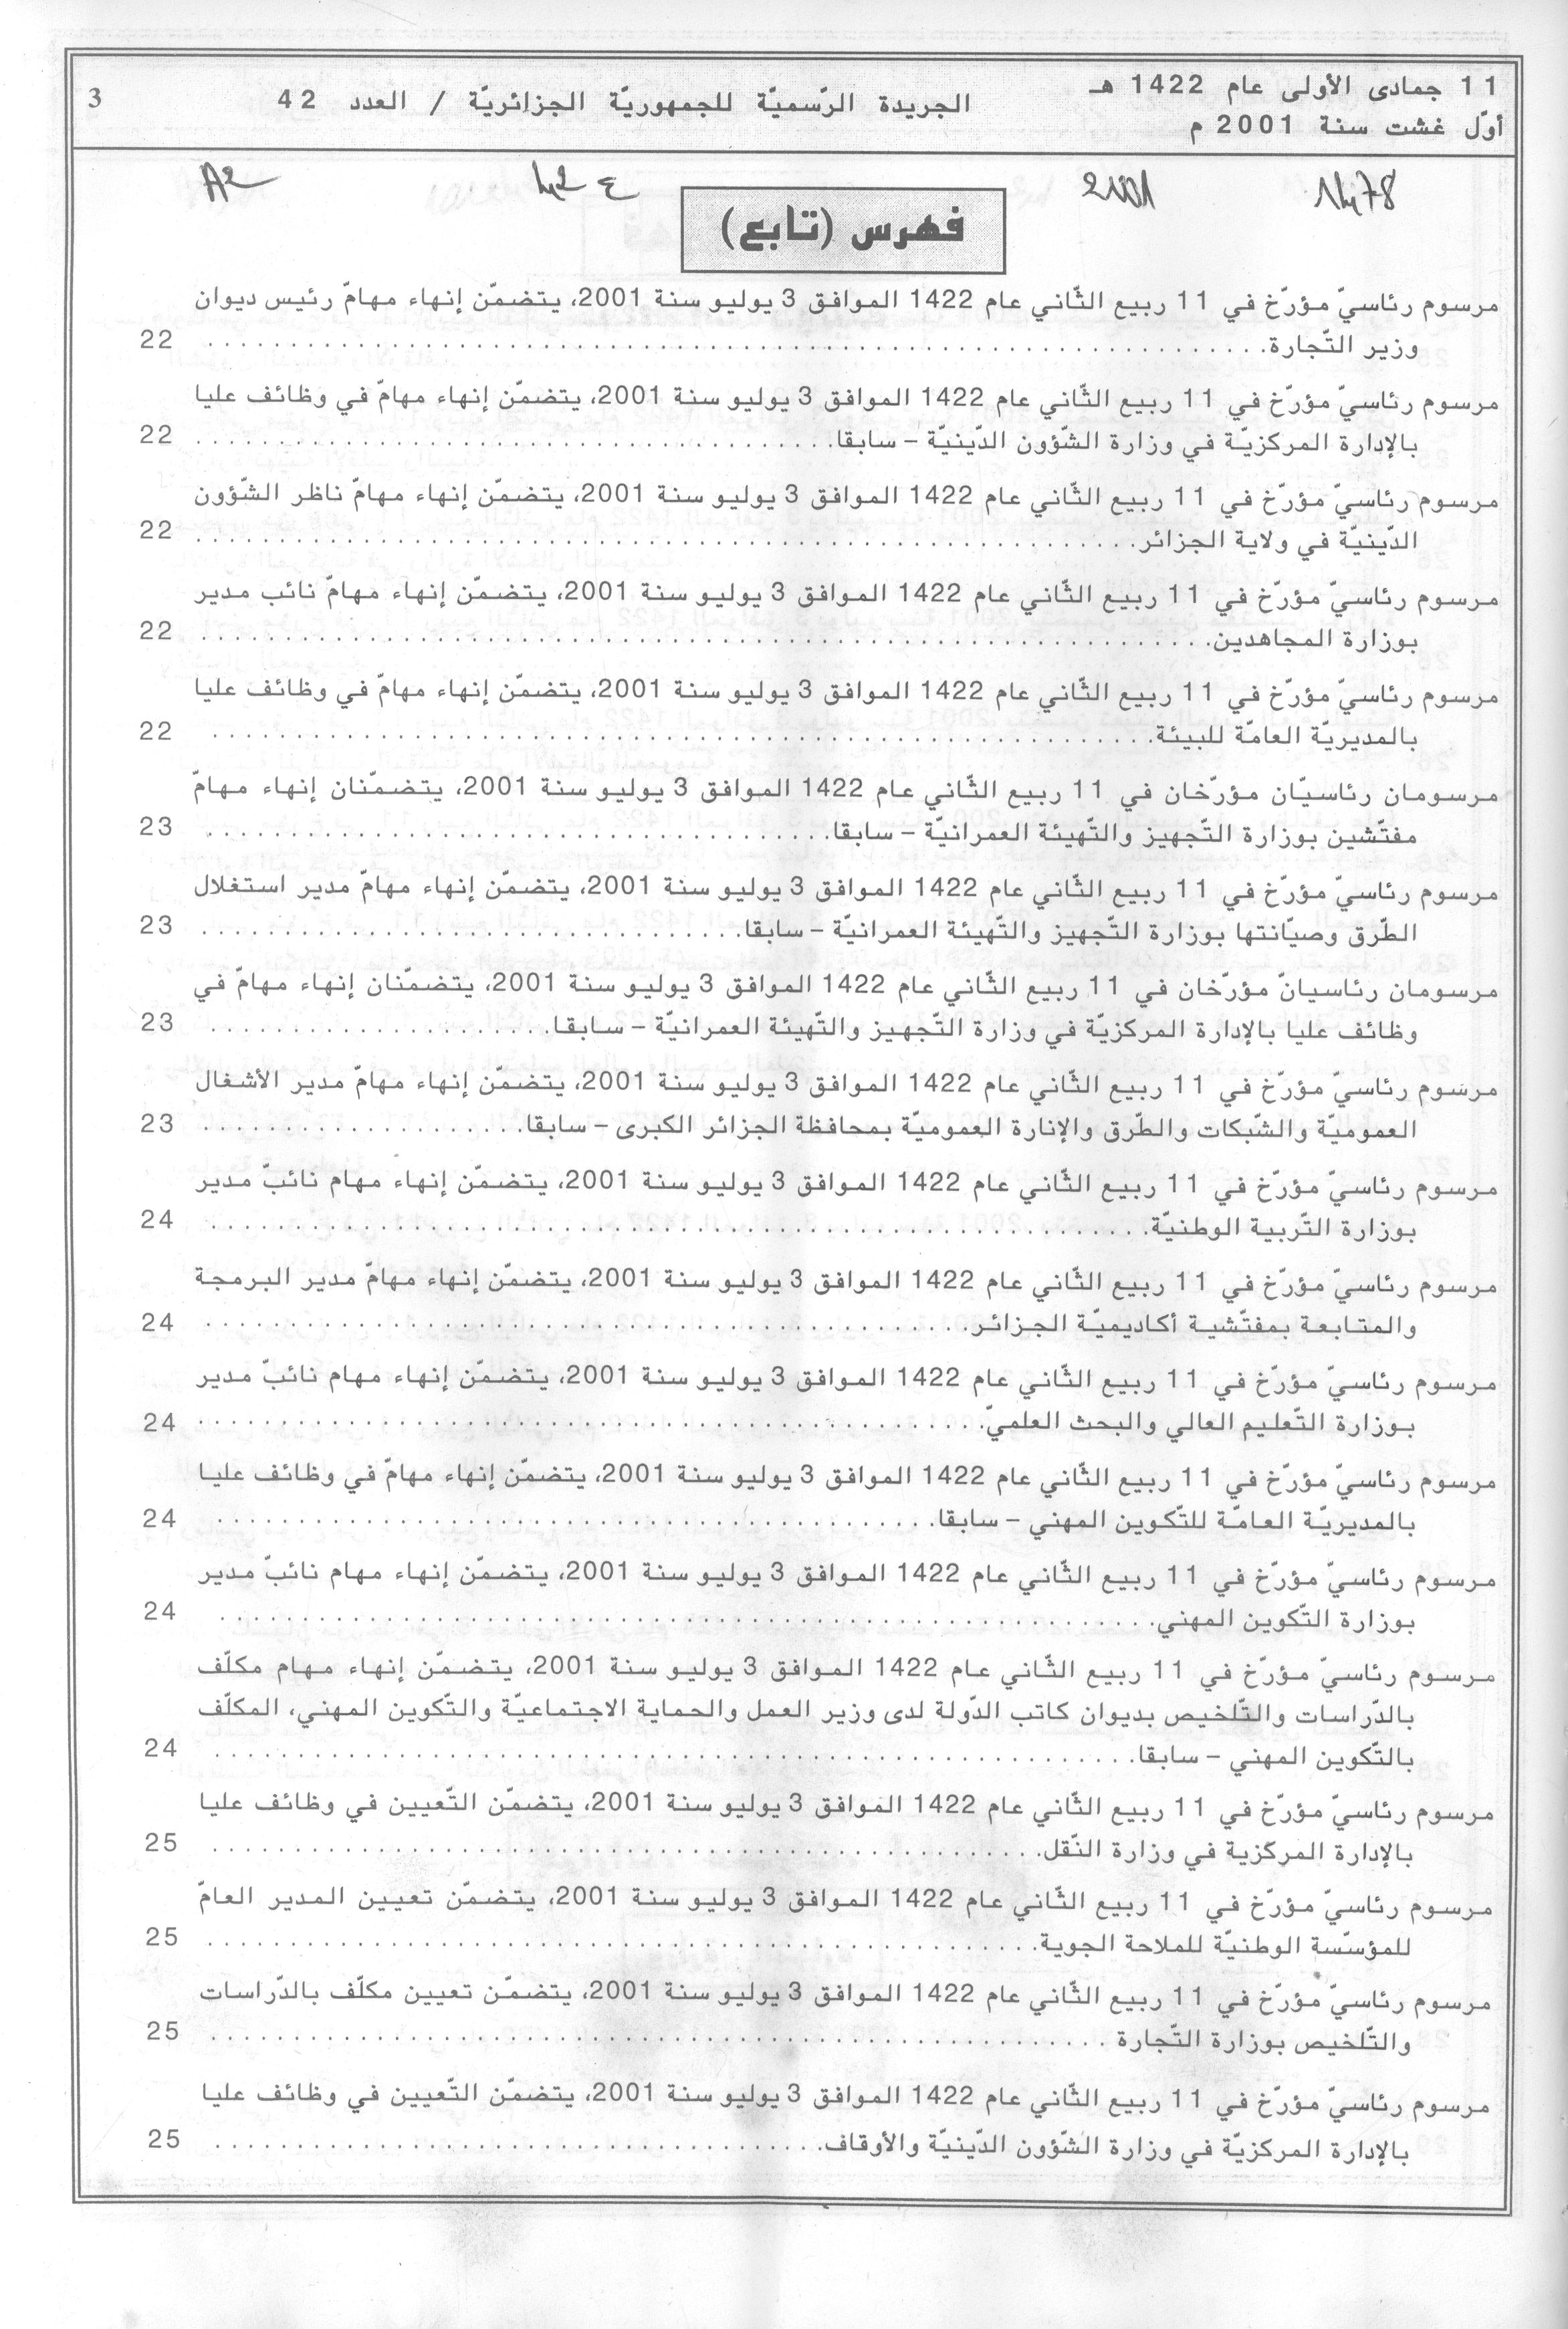 11 جمادى الأولى عام 1422 هـ
أوّل غشت سنة 2001 م
الجريدة الرّسميّة للجمهوريّة الجزائريّة / العدد 42
3
1478
2001
42 ع
A2
فهرس (تابع)
مرسوم رئاسيّ مؤرّخ في 11 ربيع الثّاني عام 1422 الموافق 3 يوليو سنة 2001، يتضمّن إنهاء مهامّ رئيس ديوان
وزير التّجارة. 22
مرسوم رئاسيّ مؤرّخ في 11 ربيع الثّاني عام 1422 الموافق 3 يوليو سنة 2001، يتضمّن إنهاء مهامّ في وظائف عليا
بالإدارة المركزيّة في وزارة الشّؤون الدّينيّة – سابقا. 22
مرسوم رئاسيّ مؤرّخ في 11 ربيع الثّاني عام 1422 الموافق 3 يوليو سنة 2001، يتضمّن إنهاء مهامّ ناظر الشّؤون
الدّينيّة في ولاية الجزائر. 22
مرسوم رئاسيّ مؤرّخ في 11 ربيع الثّاني عام 1422 الموافق 3 يوليو سنة 2001، يتضمّن إنهاء مهامّ نائب مدير
بوزارة المجاهدين. 22
مرسوم رئاسيّ مؤرّخ في 11 ربيع الثّاني عام 1422 الموافق 3 يوليو سنة 2001، يتضمّن إنهاء مهامّ في وظائف عليا
بالمديريّة العامّة للبيئة. 22
مرسومان رئاسيّان مؤرّخان في 11 ربيع الثّاني عام 1422 الموافق 3 يوليو سنة 2001، يتضمّنان إنهاء مهامّ
مفتّشين بوزارة التّجهيز والتّهيئة العمرانيّة – سابقا. 23
مرسوم رئاسيّ مؤرّخ في 11 ربيع الثّاني عام 1422 الموافق 3 يوليو سنة 2001، يتضمّن إنهاء مهامّ مدير استغلال
الطّرق وصيّانتها بوزارة التّجهيز والتّهيئة العمرانيّة – سابقا. 23
مرسومان رئاسيانّ مؤرّخان في 11 ربيع الثّاني عام 1422 الموافق 3 يوليو سنة 2001، يتضمّنان إنهاء مهامّ في
وظائف عليا بالإدارة المركزيّة في وزارة التّجهيز والتّهيئة العمرانيّة – سابقا. 23
مرسوم رئاسيّ مؤرّخ في 11 ربيع الثّاني عام 1422 الموافق 3 يوليو سنة 2001، يتضمّن إنهاء مهامّ مدير الأشغال
العموميّة والشّبكات والطّرق والإنارة العموميّة بمحافظة الجزائر الكبرى – سابقا. 23
مرسوم رئاسيّ مؤرّخ في 11 ربيع الثّاني عام 1422 الموافق 3 يوليو سنة 2001، يتضمّن إنهاء مهام نائبّ مدير
بوزارة التّربية الوطنيّة. 24
مرسوم رئاسيّ مؤرّخ في 11 ربيع الثّاني عام 1422 الموافق 3 يوليو سنة 2001، يتضمّن إنهاء مهامّ مدير البرمجة
والمتابعة بمفتّشية أكاديميّة الجزائر. 24
مرسوم رئاسيّ مؤرّخ في 11 ربيع الثّاني عام 1422 الموافق 3 يوليو سنة 2001، يتضمّن إنهاء مهام نائبّ مدير
بوزارة التّعليم العالي والبحث العلميّ. 24
مرسوم رئاسيّ مؤرّخ في 11 ربيع الثّاني عام 1422 الموافق 3 يوليو سنة 2001، يتضمّن إنهاء مهامّ في وظائف عليا
بالمديريّة العامّة للتّكوين المهني – سابقا. 24
مرسوم رئاسيّ مؤرّخ في 11 ربيع الثّاني عام 1422 الموافق 3 يوليو سنة 2001، يتضمّن إنهاء مهام نائبّ مدير
بوزارة التّكوين المهني. 24
مرسوم رئاسيّ مؤرّخ في 11 ربيع الثّاني عام 1422 الموافق 3 يوليو سنة 2001، يتضمّن إنهاء مهام مكلّف
بالدّراسات والتّلخيص بديوان كاتب الدّولة لدى وزير العمل والحماية الاجتماعيّة والتّكوين المهني، المكلّف
بالتّكوين المهني – سابقا. 24
مرسوم رئاسيّ مؤرّخ في 11 ربيع الثّاني عام 1422 الموافق 3 يوليو سنة 2001، يتضمّن التّعيين في وظائف عليا
بالإدارة المركزية في وزارة النّقل. 25
مرسوم رئاسيّ مؤرّخ في 11 ربيع الثّاني عام 1422 الموافق 3 يوليو سنة 2001، يتضمّن تعيين المدير العامّ
للمؤسّسة الوطنيّة للملاحة الجوية. 25
مرسوم رئاسيّ مؤرّخ في 11 ربيع الثّاني عام 1422 الموافق 3 يوليو سنة 2001، يتضمّن تعيين مكلّف بالدّراسات
والتّلخيص بوزارة التّجارة 25
مرسوم رئاسيّ مؤرّخ في 11 ربيع الثّاني عام 1422 الموافق 3 يوليو سنة 2001، يتضمّن التّعيين في وظائف عليا
بالإدارة المركزيّة في وزارة الشّؤون الدّينيّة والأوقاف. 25